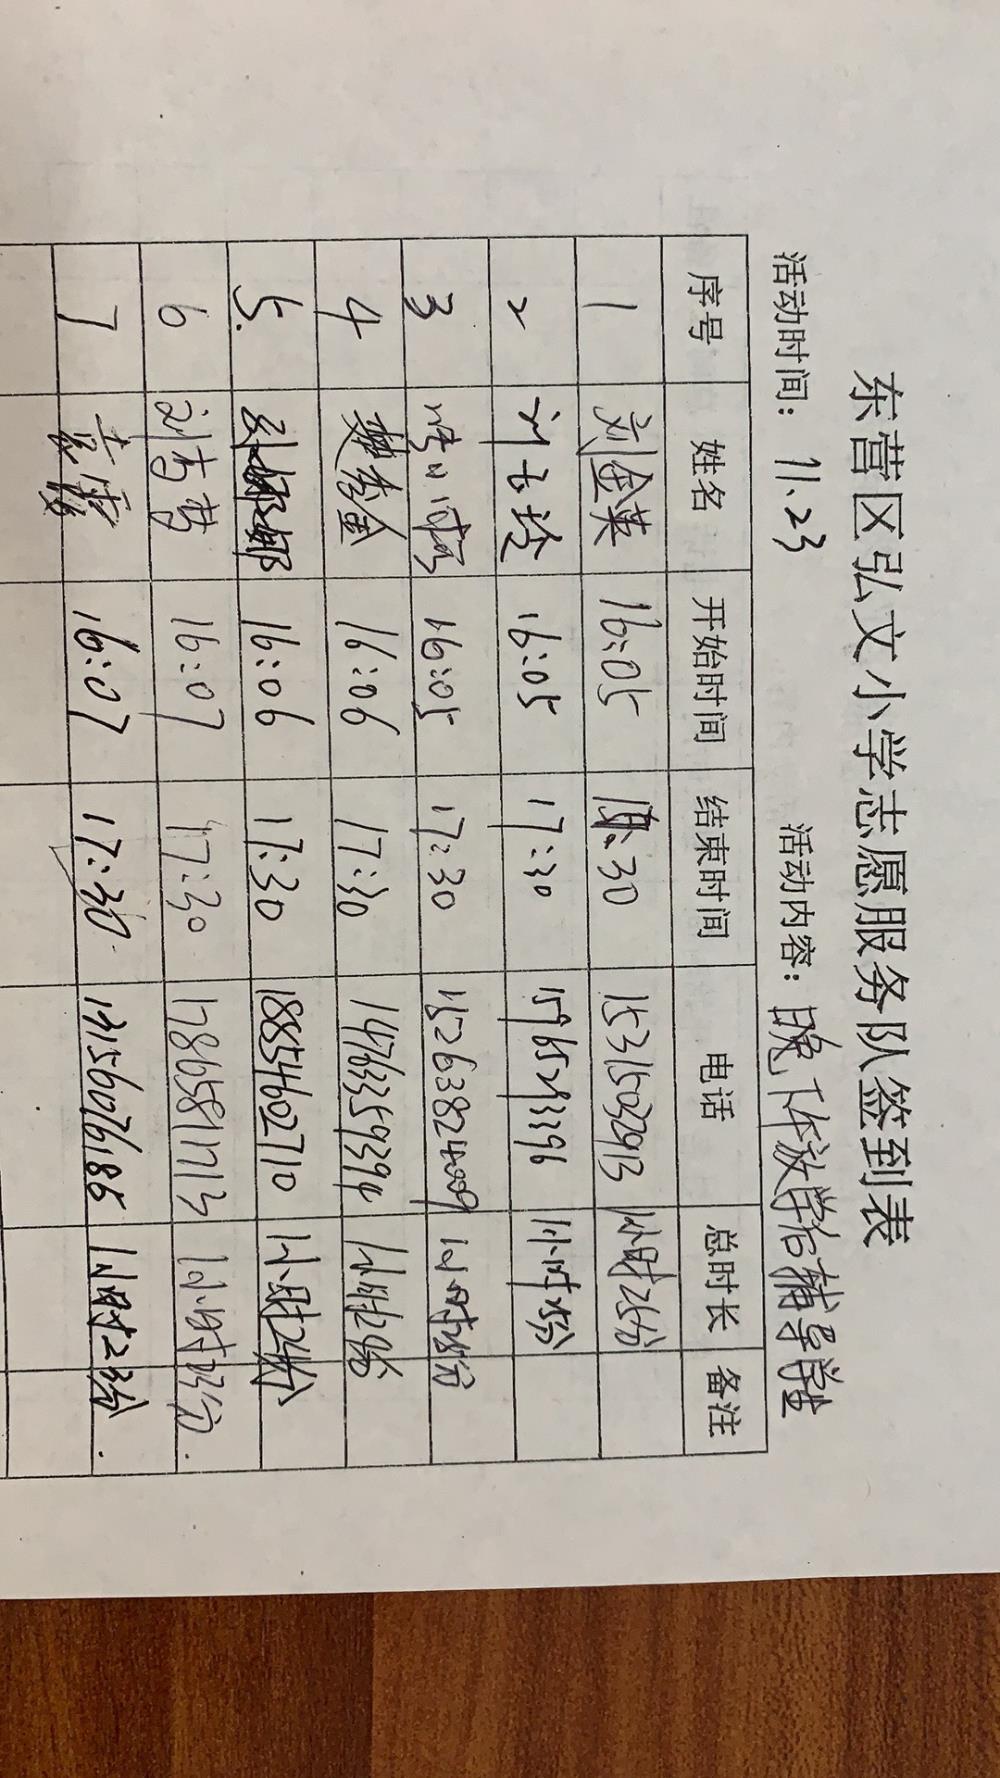 东营区弘文小学志愿服务队签到表
活动时间：11.23 活动内容：晚下午放学后辅导学生
序号 姓名 开始时间 结束时间 电话 总时长 备注
1 刘金英 16:05 :30 15315032913 1小时25分
2 刘玉玲 16:05 17:30 15965293396 1小时25分
3 16:05 17:30 15263824009 1小时25分
4 樊秀金 16:06 17:30 14763359394 1小时24分
5. 娜 16:06 17:30 18854602710 1小时24分
6 刘秀梦 16:07 17:30 17865811713 1小时23分.
7 16:07 17:30 13156076186 1小时23分.